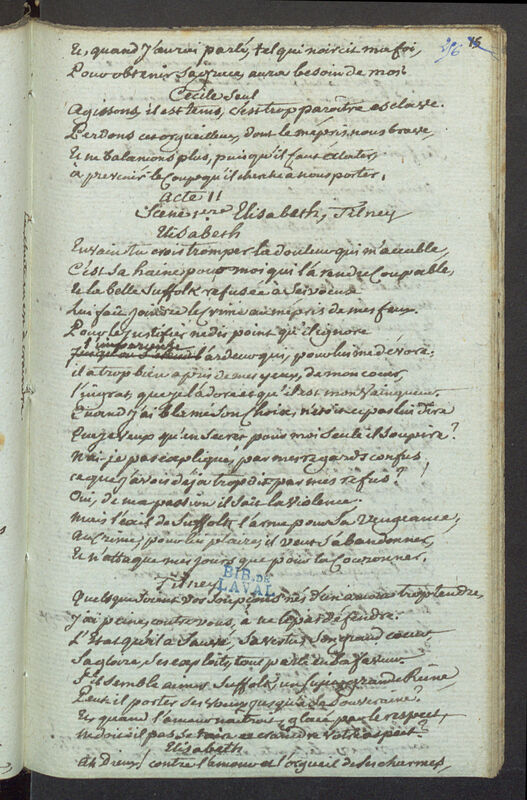 256 15
Et, quand j'aurai parlé, tel qui noircit ma foi,
Pour obtenir sa grace, aura besoin de moi
Cecile seul
Agissons, il est tems, c'est trop paroître esclave.
Perdons ces orgueilleux, dont le mepris nous brave,
Et ne balançons plus, puisqu'il faut éclater,
à prevenir le coup qu'il cherche à nous porter.
acte II
Scene 1ere Elisabeth, Tilney
Elisabeth
En vain tu crois tromper la douleur qui m'accable,
C'est sa haine pour moi qui l'a rendu coupable,
Et la belle Suffolk refusée à ses voeux
Lui fait joindre le crime au mepris de mes feux.
Pour le justifier ne dis point qu'il ignore
l'imperieuse
l'ardeur qui, pour lui me dévore.
il a trop bien apris de mes yeux, de mon coeur,
l'ingrat, que je l'adore et qu'il est mon vainqueur.
Quand j'ai blamé son choix, n'etoit ce pas lui dire
Que je veux qu'en secret pour moi seule il soupire?
N'ai-je pas expliqué, par mes regards confus
ce que j'avois déja trop dit par mes refus?
Oui, de ma passion il sait la violence,
mais l'exil de Suffolk l'arme pour sa vengeance,
au crime, pour lui plaire, il veut s'abandonner,
Et n'attaque mes jours que pour la couronner.
Tilney
BIB. DE
LAVAL
Quelques soient vos soupçons nés d'un amour trop tendre,
J'ai peine, contre vous, à ne le pas défendre.
L'Etat qu'il a sauvé, sa vertu, son grand coeur
Sa gloire, ses exploits, tout parle en sa faveur.
S'il semble aimer Suffolk, un sujet, grande Reine,
Peut il porter ses voeux jusqu'à sa Souveraine?
Et, quand l'amour naitroit, glacé par le respect,
ne doit il pas se taire et craindre votre aspect?
Elisabeth
Ah Dieux! contre l'amour et l'orgueil de ses charmes,